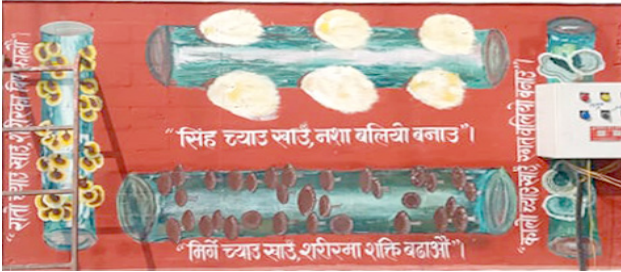 “रातो च्याउ खाउँ, शरीरका विष फालौं”।
“सिंह च्याउ खाउँ, नशा बलियो बनाउ”।
“मिर्गे च्याउ खाउँ, शरीरमा शक्ति बढाऔं”।
“कालो च्याउ खाउँ, बलियो बनाउ”।